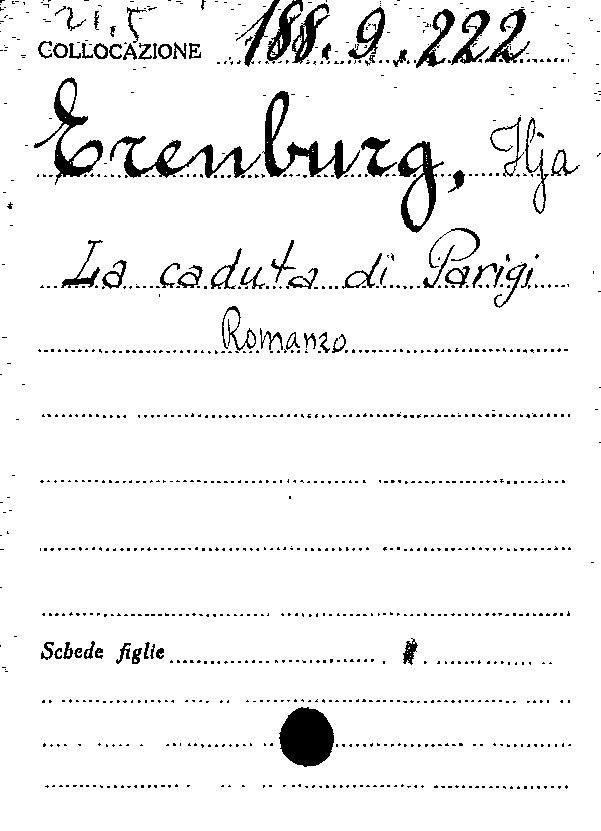 21.5
COLLOCAZIONE 188.9.222
Erenburg, Ilja
La caduta di Parigi
Romanzo
Schede figlie